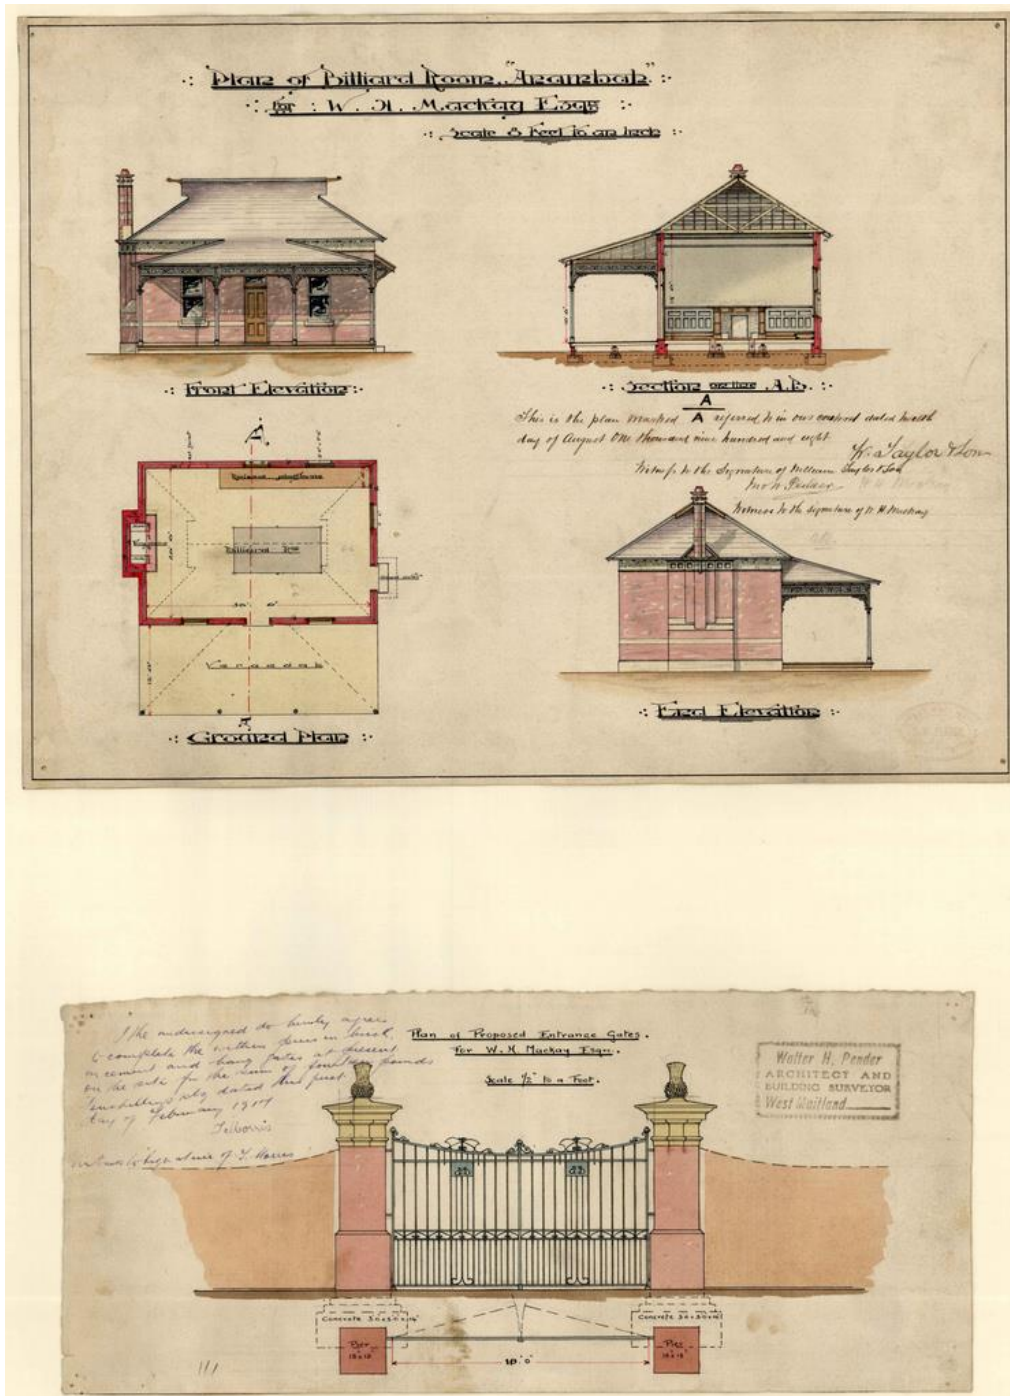 Plan of Billiard Room, "Anambah"
for W. H. Mackay Esqr
Scale 8 Feet to an Inch
Front Elevation
Section on line A.B.
A
This is the plan marked A referred to in our contract dated twelfth
day of August One thousand nine hundred and eight.
W. Taylor & Son
Witness to the Signature of William Taylor & Son
W. H. Pender
W H Mackay
Witness to the signature of W. H. Mackay
A
Billiard Rm
30' 0"
Verandah
A
Ground Plan
End Elevation
I the undersigned do hereby agree
to complete the within piers in brick
in cement and hang gates at present
on the site for the sum of fourteen pounds
shillings dated this first
day of February 19
Witness to signature of T. Morris
Plan of Proposed Entrance Gates.
For W. H. Mackay Esqr.
Scale 1/2" to a Foot.
Walter H. Pender
ARCHITECT AND
BUILDING SURVEYOR
West Maitland
Concrete
Concrete
Pier
18 x 18
Pier
18 x 18
10' 0"